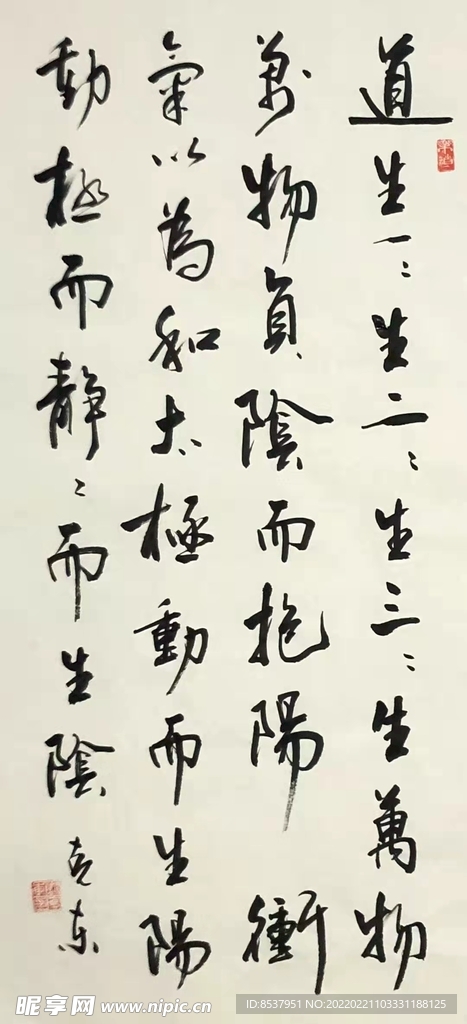 道生一〻生二〻生三〻生萬物
萬物負陰而抱陽衝
氣以為和太極動而生陽
動極而静〻而生陰
克东
昵享网 www.nipic.cn
ID:8537951 NO:20220221103331188125